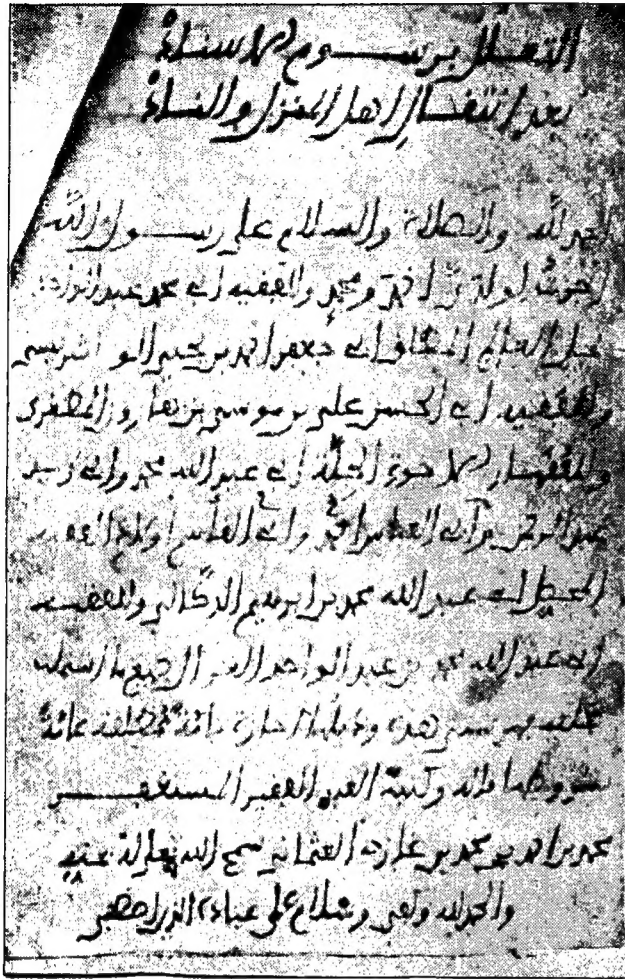 التعلل برسوم الإسناد
بعد انتقال أهل المنزل والناد
الحمد لله والصلاة والسلام على رسول الله
أجزت لولدي أحمد ومحمد والفقيه أبي محمد عبد الواحد
نجل العالم أبي جعفر أحمد بن يحيى الونشريسي
والفقيه أبي الحسن علي بن موسى بن هارون المطغري
والفقيهين الأخوين أبي عبد الله محمد وأبي زيد
عبد الرحمن بن أبي العباس وأبي القاسم
أبي عبد الله محمد بن إبراهيم الدكالي والفقيه
أبي عبد الله محمد بن عبد الواحد جميع ما اشتملت
عليه فهرستي هذه إجازة تامة مطلقة عامة
بشروطها وكتبه العبد الفقير المستغفر
محمد بن أحمد بن محمد بن غازي العثماني سمح الله تعالى له بمنه
والحمد لله وكفى وسلام على عباده الذين اصطفى